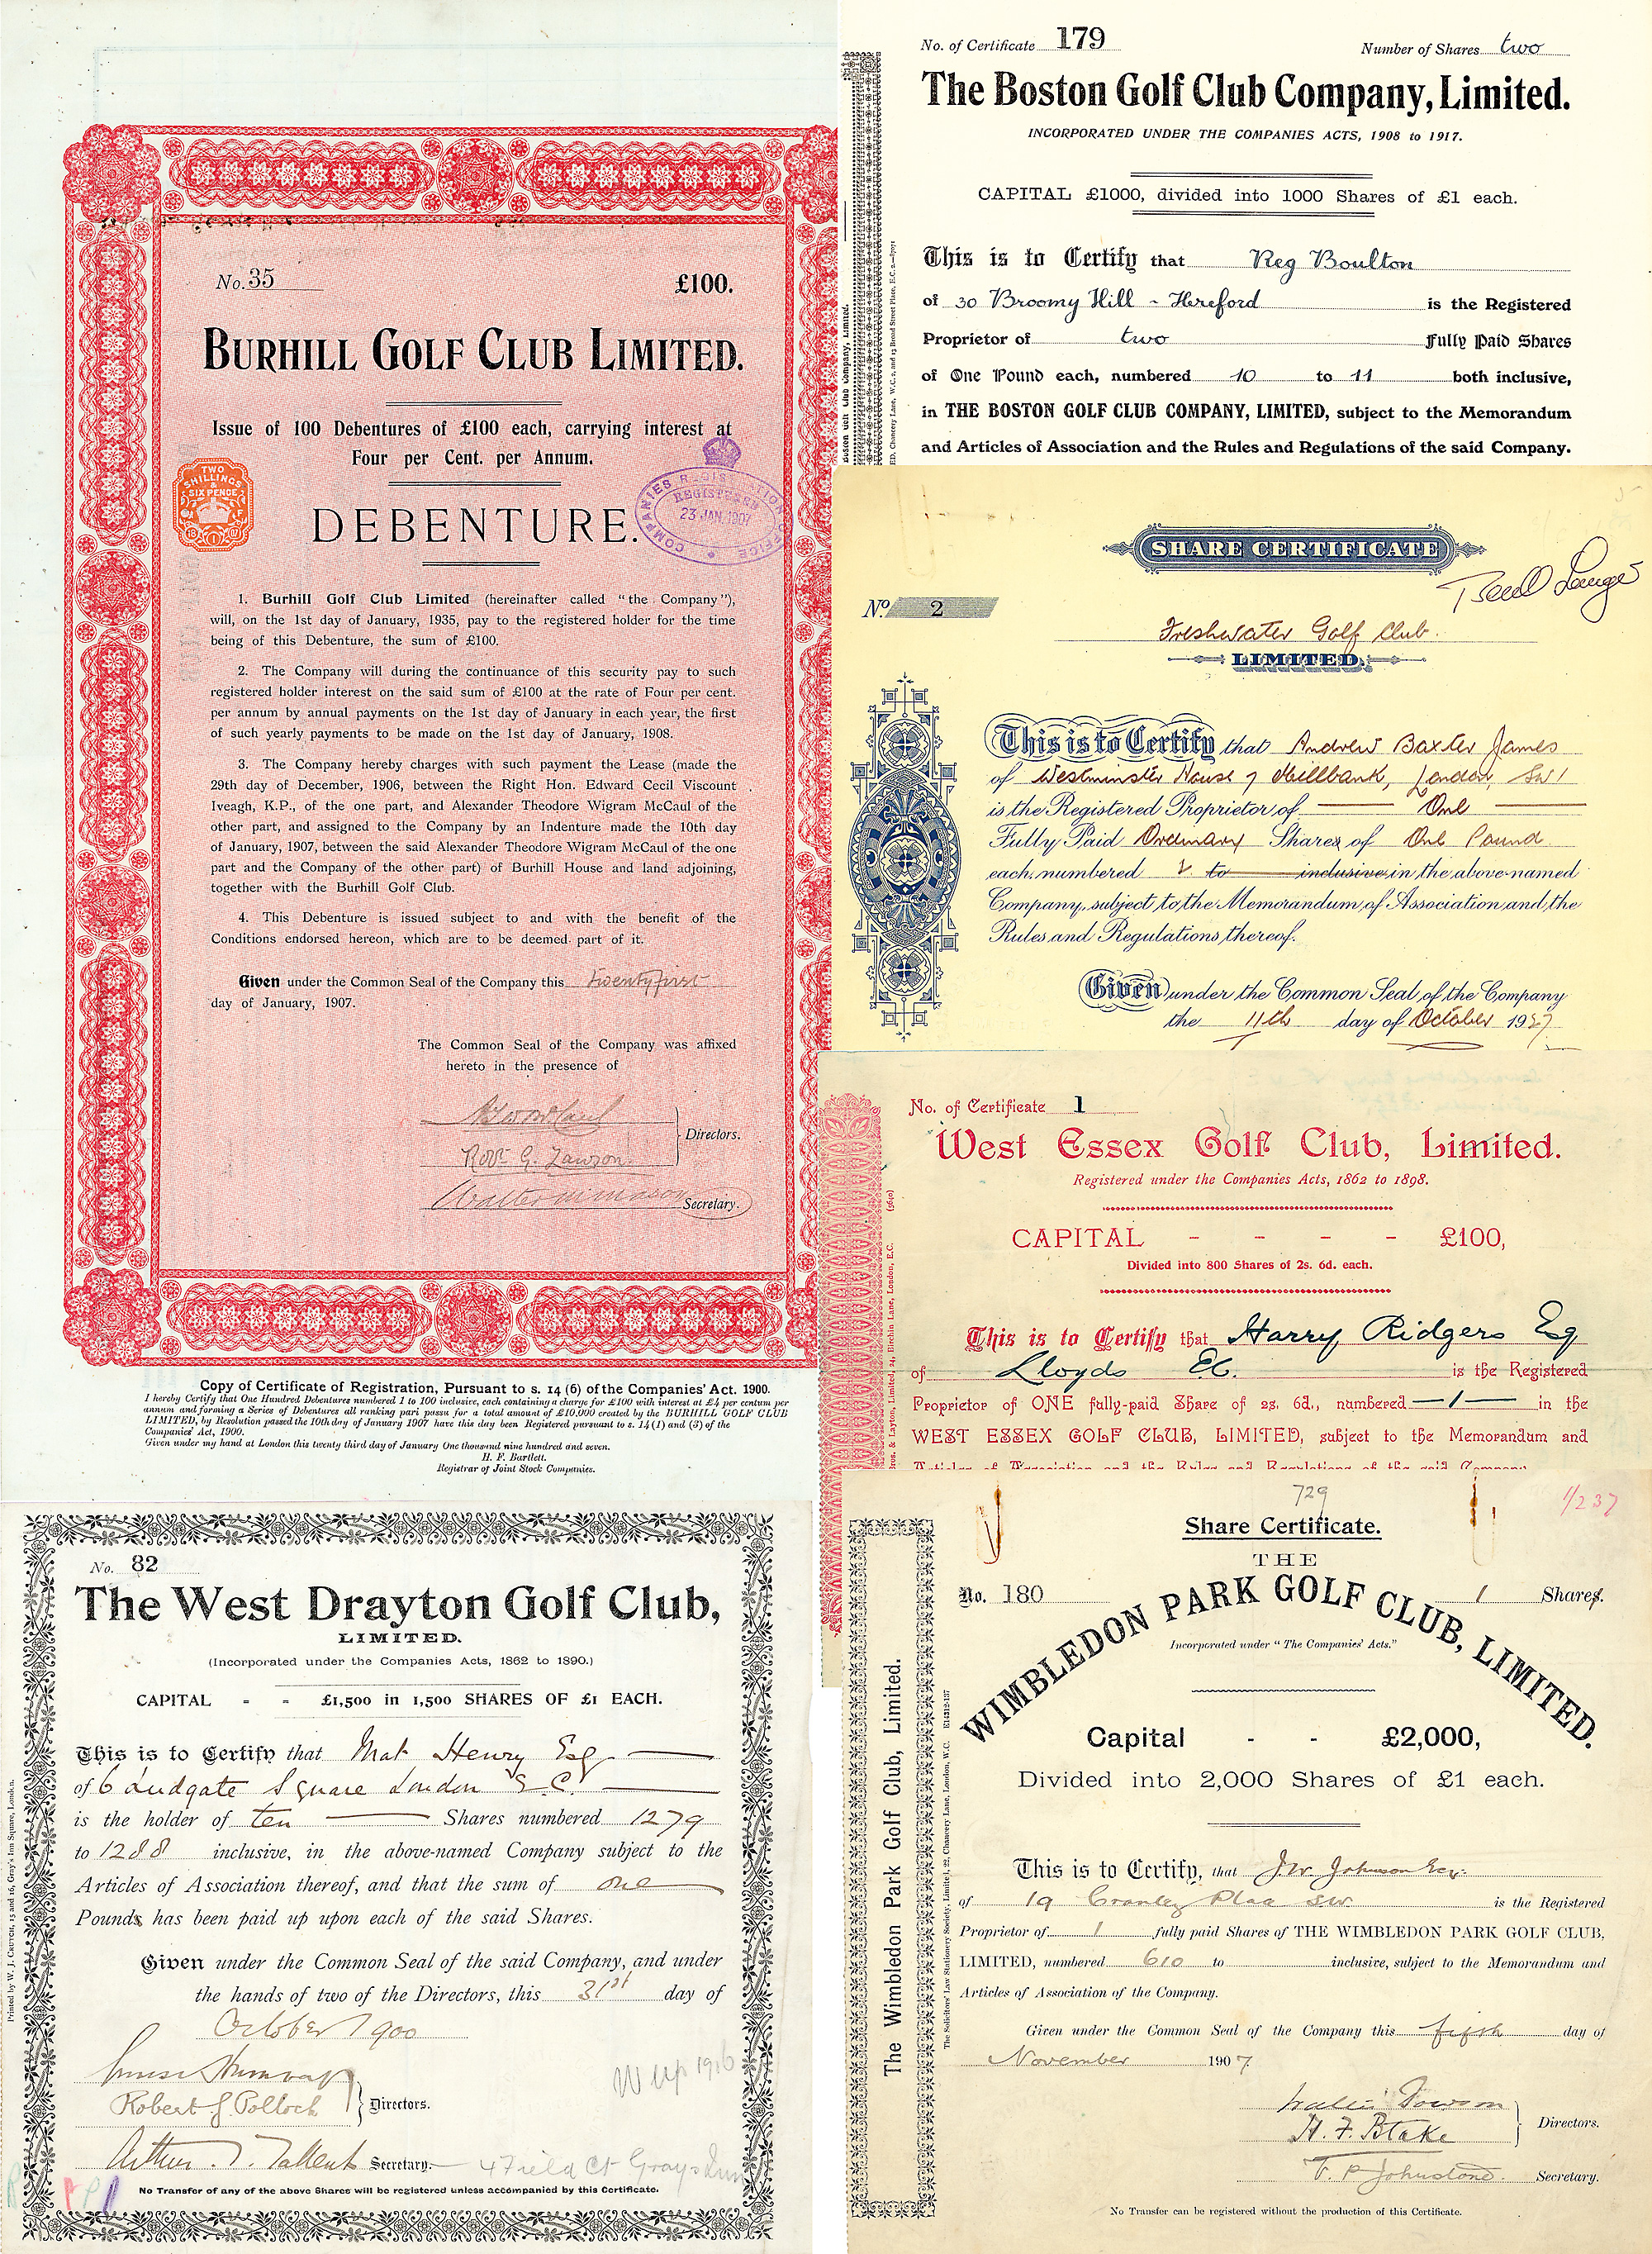 No. 35
£100.
BURHILL GOLF CLUB LIMITED.
Issue of 100 Debentures of £100 each, carrying interest at
Four per Cent. per Annum.
TWO
SHILLINGS
&
SIX PENCE
COMPANIES REGISTRATION OFFICE
REGISTERED
23 JAN. 1907
DEBENTURE.
1. Burhill Golf Club Limited (hereinafter called "the Company"),
will, on the 1st day of January, 1935, pay to the registered holder for the time
being of this Debenture, the sum of £100.
2. The Company will during the continuance of this security pay to such
registered holder interest on the said sum of £100 at the rate of Four per cent.
per annum by annual payments on the 1st day of January in each year, the first
of such yearly payments to be made on the 1st day of January, 1908.
3. The Company hereby charges with such payment the Lease (made the
29th day of December, 1906, between the Right Hon. Edward Cecil Viscount
Iveagh, K.P., of the one part, and Alexander Theodore Wigram McCaul of the
other part, and assigned to the Company by an Indenture made the 10th day
of January, 1907, between the said Alexander Theodore Wigram McCaul of the one
part and the Company of the other part) of Burhill House and land adjoining,
together with the Burhill Golf Club.
4. This Debenture is issued subject to and with the benefit of the
Conditions endorsed hereon, which are to be deemed part of it.
Given under the Common Seal of the Company this Twenty first
day of January, 1907.
The Common Seal of the Company was affixed
hereto in the presence of
Directors.
Robt G. Lawson
Walter M Mason Secretary.
Copy of Certificate of Registration, Pursuant to s. 14 (6) of the Companies' Act. 1900.
I hereby Certify that One Hundred Debentures numbered 1 to 100 inclusive, each containing a charge for £100 with interest at £4 per centum per
annum and forming a Series of Debentures all ranking pari passu for a total amount of £10,000 created by the BURHILL GOLF CLUB
LIMITED, by Resolution passed the 10th day of January 1907 have this day been Registered pursuant to s. 14 (1) and (3) of the
Companies' Act, 1900.
Given under my hand at London this twenty third day of January One thousand nine hundred and seven.
H. F. Bartlett.
Registrar of Joint Stock Companies.
No. of Certificate 179
Number of Shares two
The Boston Golf Club Company, Limited.
INCORPORATED UNDER THE COMPANIES ACTS, 1908 to 1917.
CAPITAL £1000, divided into 1000 Shares of £1 each.
This is to Certify that Reg Boulton
of 30 Broomy Hill - Hereford is the Registered
Proprietor of two Fully Paid Shares
of One Pound each, numbered 10 to 11 both inclusive,
in THE BOSTON GOLF CLUB COMPANY, LIMITED, subject to the Memorandum
and Articles of Association and the Rules and Regulations of the said Company.
SHARE CERTIFICATE
No. 2
Freshwater Golf Club.
LIMITED.
This is to Certify that Andrew Baxter James
of Westminster House 7 Millbank, London, SW1
is the Registered Proprietor of One
Fully Paid Ordinary Shares of One Pound
each, numbered 2 to inclusive in the above-named
Company, subject to the Memorandum of Association and the
Rules and Regulations thereof.
Given under the Common Seal of the Company
the 11th day of October 19
No. of Certificate 1
West Essex Golf Club, Limited.
Registered under the Companies Acts, 1862 to 1898.
CAPITAL - - - - £100,
Divided into 800 Shares of 2s. 6d. each.
This is to Certify that Harry Ridgers Esq
of Lloyds EC. is the Registered
Proprietor of ONE fully-paid Share of 2s. 6d., numbered 1 in the
WEST ESSEX GOLF CLUB, LIMITED, subject to the Memorandum and
Articles of Association and the Rules and Regulations of the said Company.
No. 82
The West Drayton Golf Club,
LIMITED.
(Incorporated under the Companies Acts, 1862 to 1890.)
CAPITAL - - £1,500 in 1,500 SHARES OF £1 EACH.
This is to Certify that Mat Henry Esq
of 6 Ludgate Square London E.C.
is the holder of ten Shares numbered 1279
to 1288 inclusive, in the above-named Company subject to the
Articles of Association thereof, and that the sum of one
Pounds has been paid up upon each of the said Shares.
Given under the Common Seal of the said Company, and under
the hands of two of the Directors, this 31st day of
October 1900
Robert G. Pollock Directors.
Arthur T. Tallent Secretary.
4 Field Ct Grays Inn
W up 1906
No Transfer of any of the above Shares will be registered unless accompanied by this Certificate.
Printed by W. J. CRUTCH, 15 and 16, Gray's Inn Square, London.
729
1/237
Share Certificate.
No. 180
1 Shares.
THE
WIMBLEDON PARK GOLF CLUB, LIMITED.
Incorporated under "The Companies' Acts."
Capital - - £2,000,
Divided into 2,000 Shares of £1 each.
This is to Certify, that J.W. Johnson Esq.
of 19 Cranley Place SW. is the Registered
Proprietor of 1 fully paid Shares of THE WIMBLEDON PARK GOLF CLUB,
LIMITED, numbered 610 to inclusive, subject to the Memorandum and
Articles of Association of the Company.
Given under the Common Seal of the Company this fifth day of
November 1907
H. F. Blake Directors.
T. P. Johnstone Secretary.
No Transfer can be registered without the production of this Certificate.
The Wimbledon Park Golf Club, Limited.